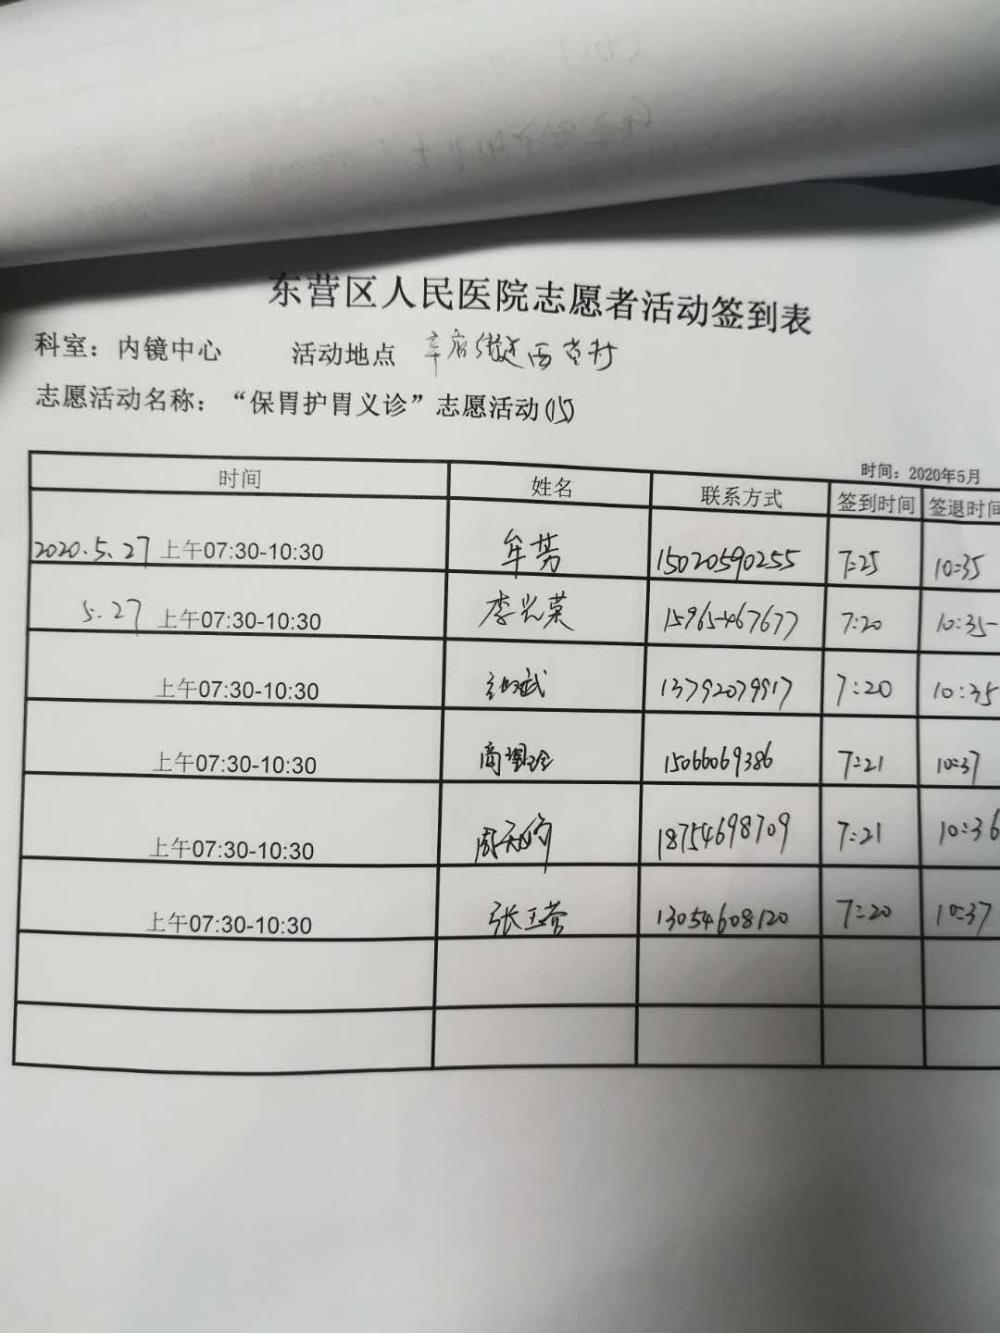 东营区人民医院志愿者活动签到表
科室：内镜中心 活动地点 辛店街道西营村
志愿活动名称：“保胃护胃义诊”志愿活动(15)
时间：2020年5月
时间 姓名 联系方式 签到时间 签退时间
2020.5.27 上午07:30-10:30 牟芳 15020590255 7:25 10:35
5.27 上午07:30-10:30 李光荣 15965467677 7:20 10:35
上午07:30-10:30 13792079917 7:20 10:35
上午07:30-10:30 商 15066069386 7:21 10:37
上午07:30-10:30 周 18754698709 7:21 10:36
上午07:30-10:30 张玉营 13054608120 7:20 10:37